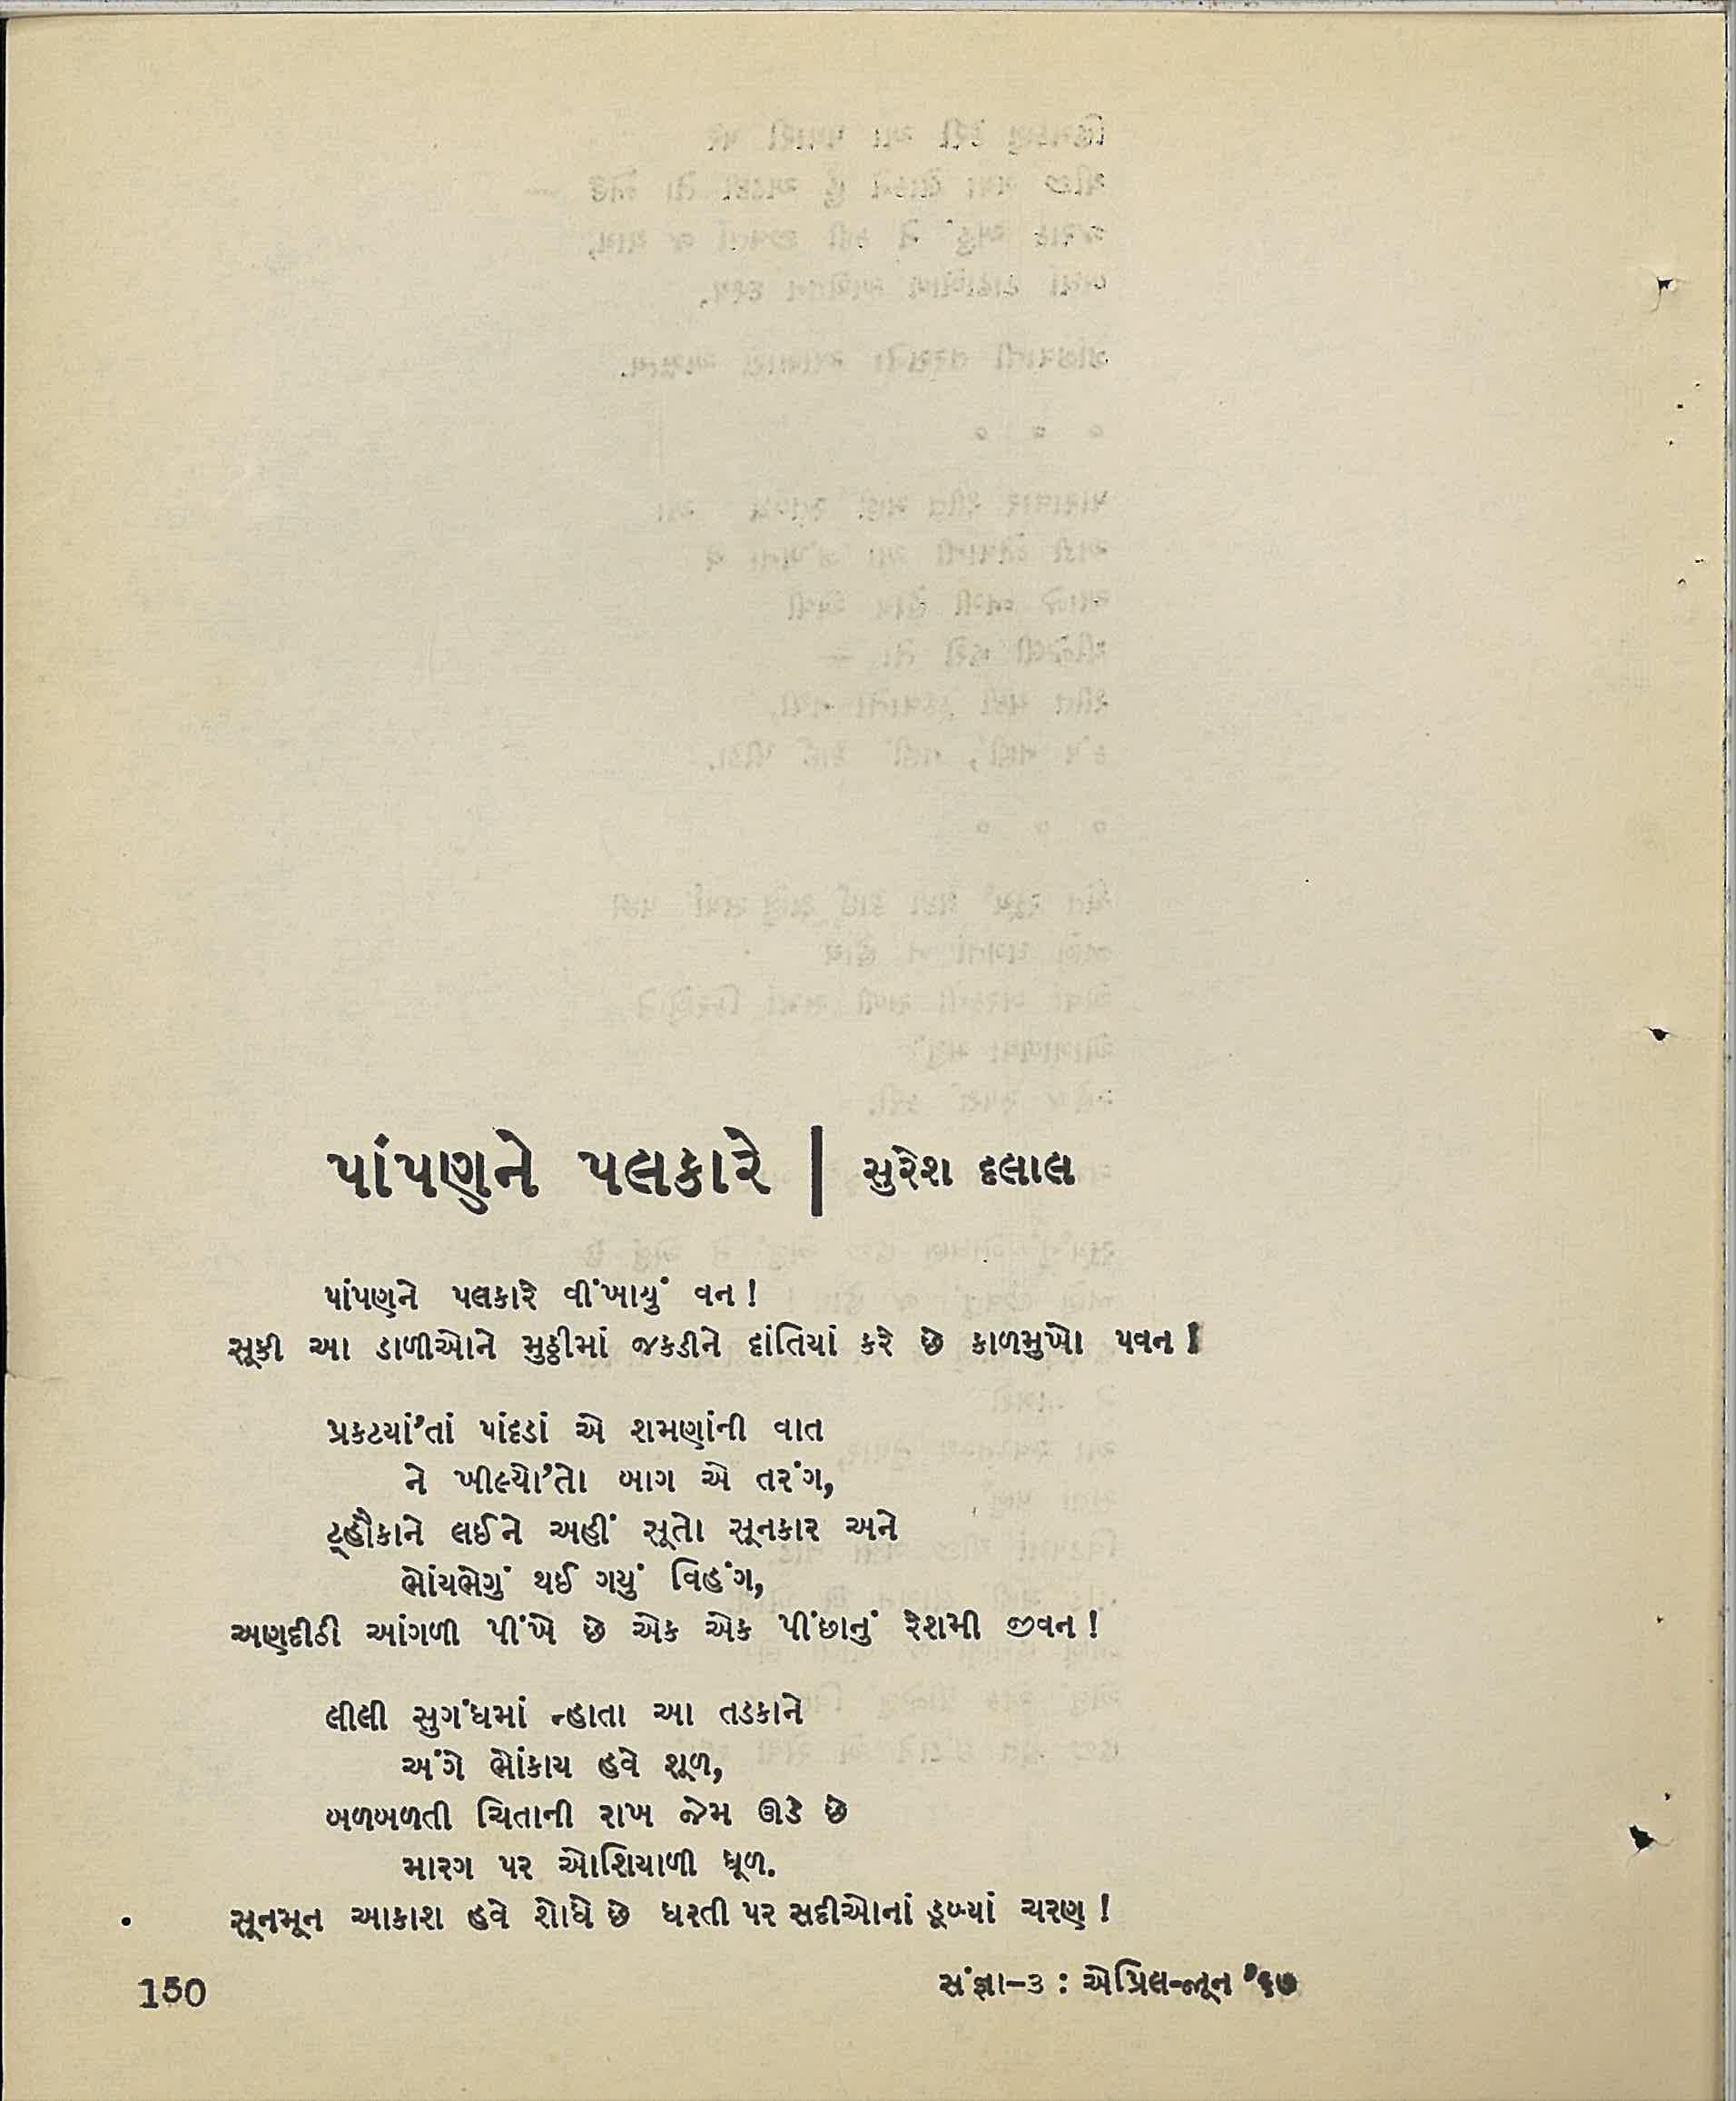 પાંપણને પલકારે | સુરેશ દલાલ
પાંપણને પલકારે વીંખાયું વન !
સૂકી આ ડાળીઓને મુઠ્ઠીમાં જકડીને દાંતિયાં કરે છે કાળમુખો પવન !
પ્રકટયાં’તાં પાંદડાં એ શમણાંની વાત
ને ખીલ્યો’તો બાગ એ તરંગ,
ટ્હૌકાને લઈને અહીં સૂતો સૂનકાર અને
ભોંયભેગું થઈ ગયું વિહંગ,
અણદીઠી આંગળી પીંખે છે એક એક પીંછાનું રેશમી જીવન !
લીલી સુગંધમાં ન્હાતા આ તડકાને
અંગે ભોંકાય હવે શૂળ,
બળબળતી ચિતાની રાખ જેમ ઊડે છે
મારગ પર ઓશિયાળી ધૂળ.
સૂનમૂન આકાશ હવે શોધે છે ધરતી પર સદીઓનાં ડૂબ્યાં ચરણ !
150
સંજ્ઞા-૩ : એપ્રિલ-જૂન ’૬૭